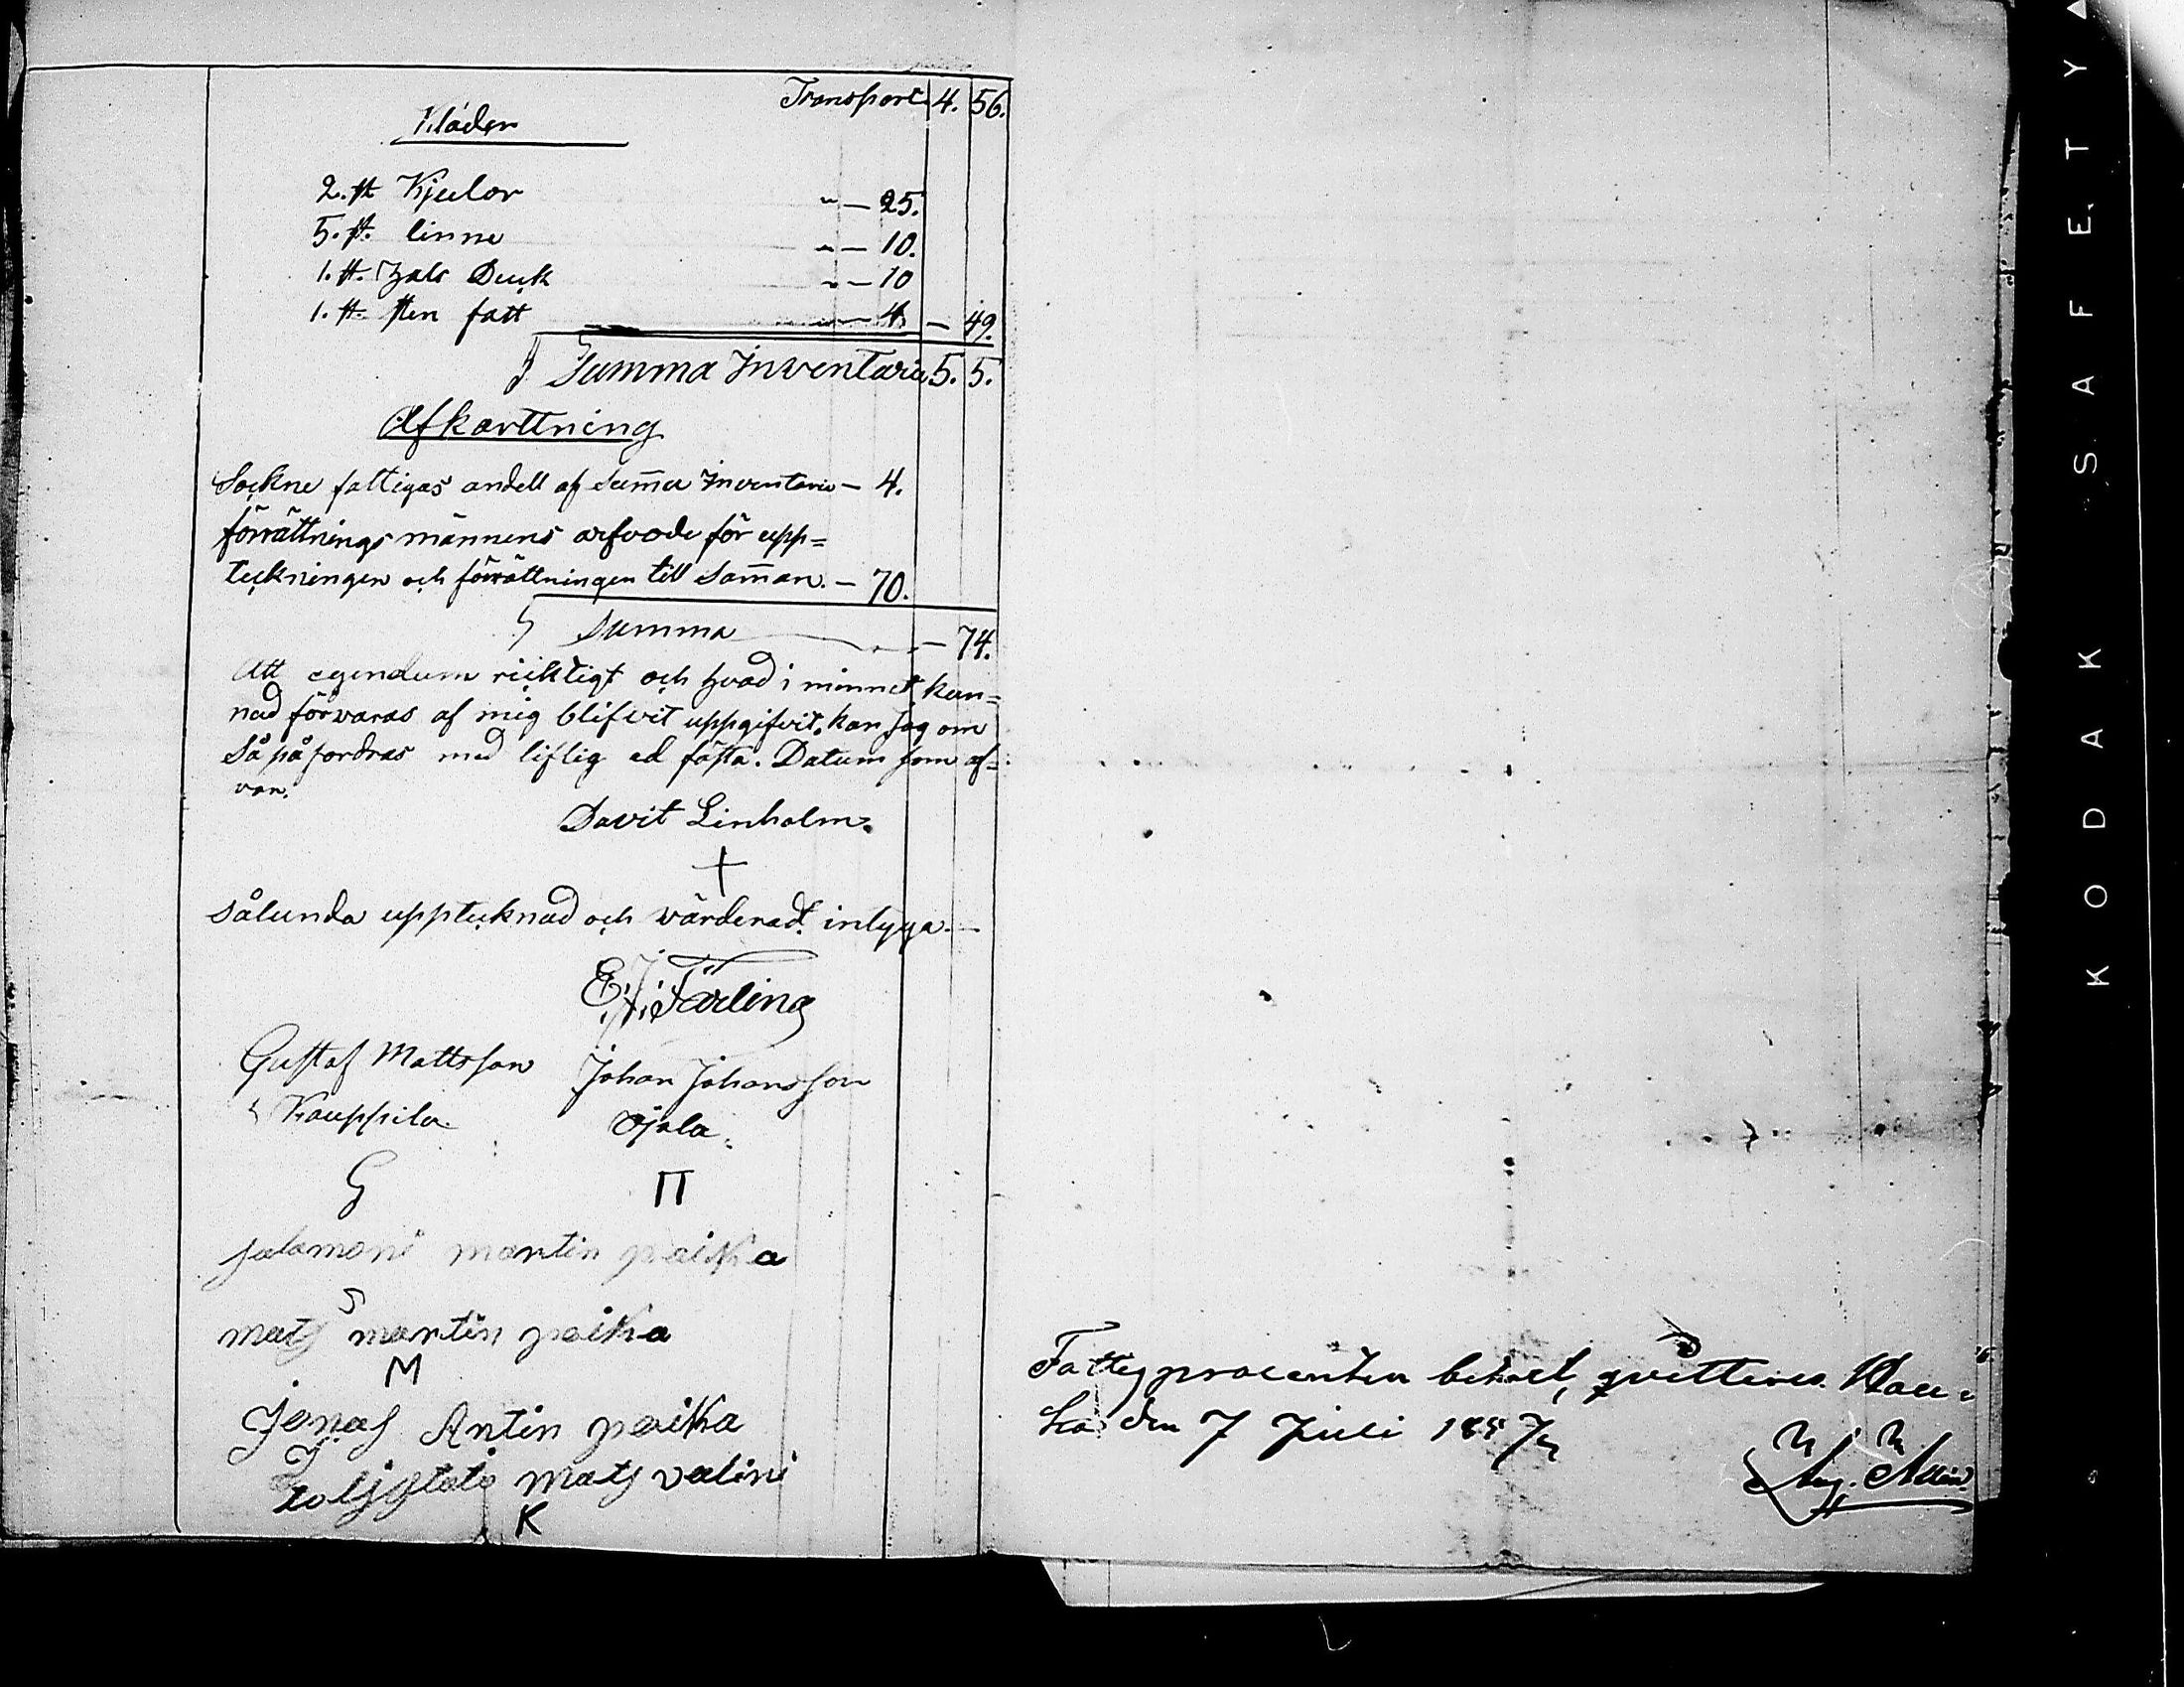 Transport 4. 56.
Kläder
2. st Kjulor " — 25.
5. st. linne " — 10.
1. st. hals Duck " — 10
1. st. sten fatt " — 4 — 49.
Summa Inventarie 5. 5.
Afkarttning
Sockne fattigas andell af Summa Inventarie — 4.
förrättnings männens arfvode för upp=
teckningen och förrättningen till samman. — 70.
Summa — 74.
Att egendum ricktigt och hvad i minnet kun=
nad förvaras af mig blifvit uppgifvit, kan jag om
så påfordras med liflig ed fästa. Datum som of=
van.
Davit Linholm.
+
sålunda upptecknad och värderad. intyga. —
E. J. Färling
Gustaf Mattsson Johan Johansson
Kauppila. Ojala.
G Π
salamoni martin poika
S
mats martin poika
M
Jonas Antin poika
J
mats valini
K
Fattigprocenten betalt, qvitteras. Kau=
den 7 Juli 1857
Aug.
KODAK SAFETY